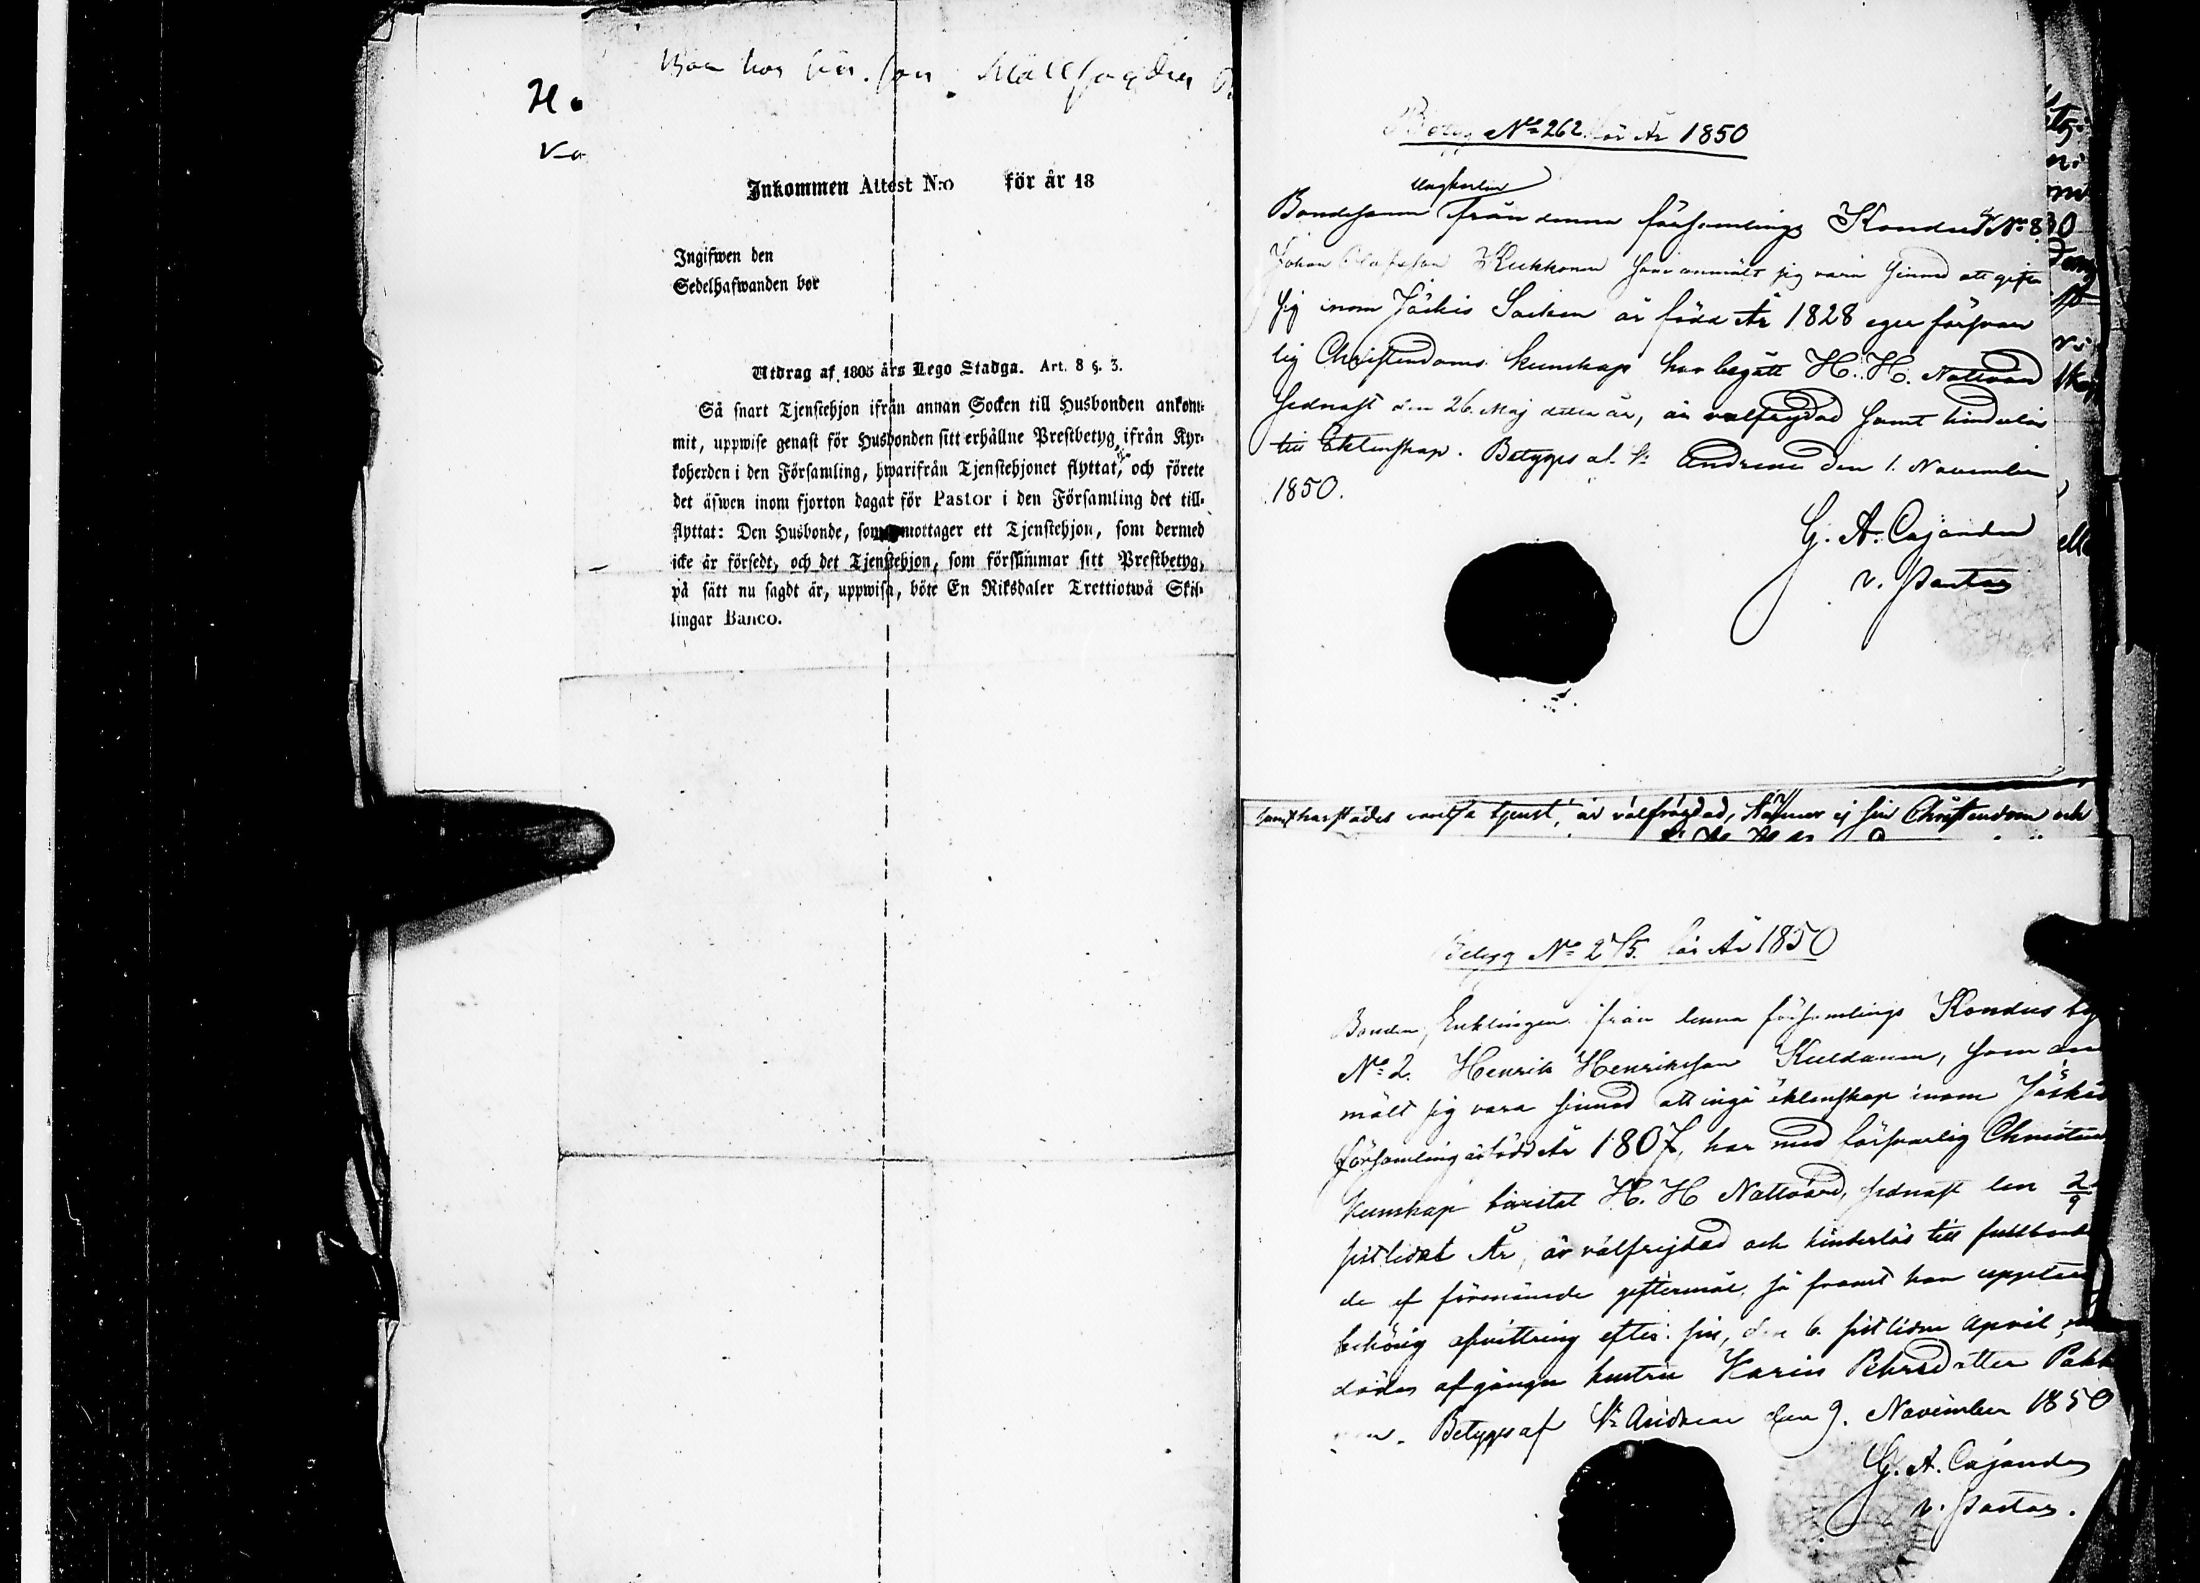 Bor hos sin son
H
Inkommen Attest N:o för år 18
Ingifwen den
Sedelhafwanden bor
Utdrag af 1805 års Lego Stadga. Art. 8 §. 3.
Så snart Tjenstehjon ifrån annan Socken till Husbonden ankom-
mit, uppwise genast för Husbonden sitt erhållne Prestbetyg, ifrån Kyr-
koherden i den Församling, hwarifrån Tjenstehjonet flyttat, och förete
det äfwen inom fjorton dagar för Pastor i den Församling det till-
flyttat: Den Husbonde, som emottager ett Tjenstehjon, som dermed
icke är försedt, och det Tjenstehjon, som försummar sitt Prestbetyg,
på sätt nu sagdt är, uppwisa, böte En Riksdaler Trettiotwå Skil-
lingar Banco.
Betyg No 262 för År 1850
Ungkarlen
Bondesonen från denna församlings Kondus No 8
Johan Olofsson Kukkonen som anmält sig vara sinnad att gifta
sig inom Jäskis Socken är född År 1828 eger försvar
lig Christendoms kunskap har begått H. H. Nattvard
sednast den 26. Maj detta år, är välfrejdad samt hinderlös
till Ektenskap. Betygas af St Andreae den 1. November
1850.
G. A. Cajander
v. Pastor
samt härstädes varit i tjenst, är välfrägdad, känner ej sin Christendom och
Betyg No 275. för År 1850
Bonden, Enklingen från denna församlings Kondus by
No 2. Henrik Henriksson Kuldanen, som an
mält sig vara sinnad att ingå äktenskap inom Jäskis
församling är född År 1807, har med försvarlig Christen
kunskap bevistat H. H. Nattvard, sednast den
sistlidet År, är välfrejdad och hinderlös till fullbord
de af förenämnde giftermål, så framt han uppstäm
behörig afvittring efter sin, den 6. sistlidne April
döden afgångne hustru Karin Pehrsdotter Pakk
nen. Betygas af St Andreae den 9. November 1850
G. A. Cajander
v. Pastor.